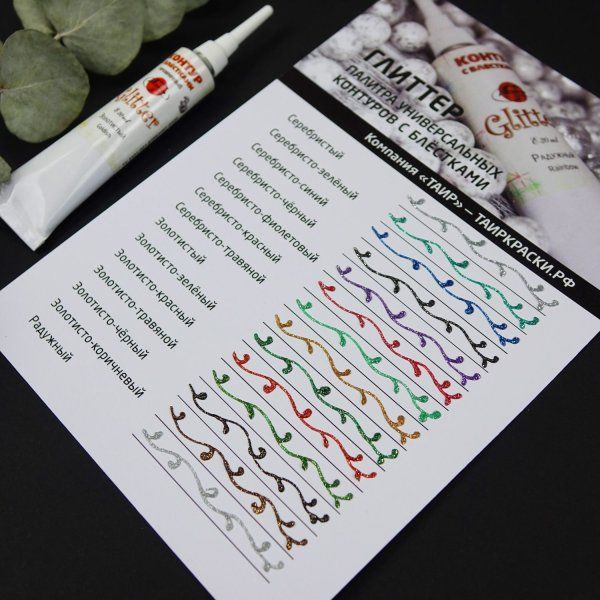 КОНТУР
С БЛЁСТКАМИ
Glitter
ГЛИТТЕР
ПАЛИТРА УНИВЕРСАЛЬНЫХ
КОНТУРОВ С БЛЁСТКАМИ
КОНТУР
С БЛЁСТКАМИ
Glitter
20 ml
Радужный
Rainbow
Компания «ТАИР» — ТАИРКРАСКИ.РФ
Серебристый
Серебристо-зелёный
Серебристо-синий
Серебристо-чёрный
Серебристо-фиолетовый
Серебристо-красный
Серебристо-травяной
Золотистый
Золотисто-зелёный
Золотисто-красный
Золотисто-травяной
Золотисто-чёрный
Золотисто-коричневый
Радужный